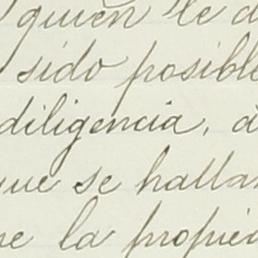 quien le d
sido posible
diligencia, a
que se halla
ne la propied